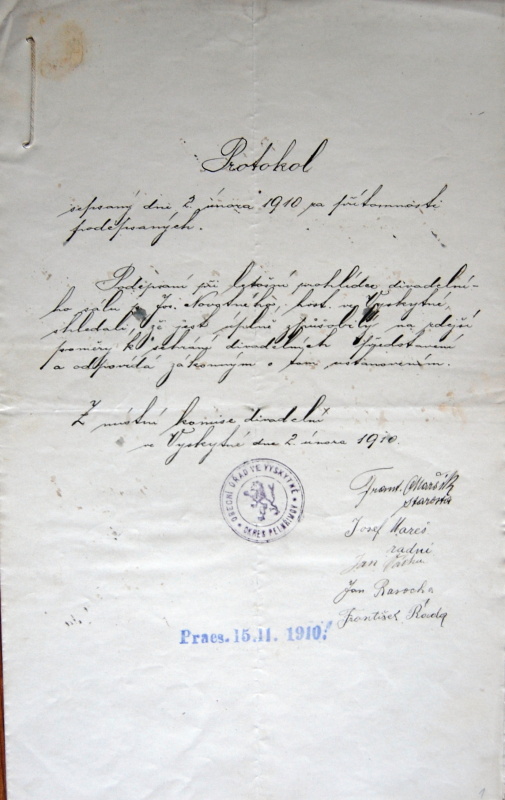 Protokol
sepsaný dne 2. února 1910 za přítomnosti
podepsaných.
Podepsaní při letošní prohlídce divadelní-
ho sálu p. Jos. Novotného, host. ve Vyskytné,
shledali, že jest úplně způsobilý na zdejší
poměry k sehrání divadelných představení
a odpovídá zákonným o tom ustanovením.
Z místní komise divadelní
v Vyskytné dne 2. února 1910.
OBECNÍ ÚŘAD VE VYSKYTNÉ
OKRES PELHŘIMOV
Frant. Maršík
starosta
Josef Mareš
radní
Jan
Jan
František Rada
Praes. 15.II. 1910.